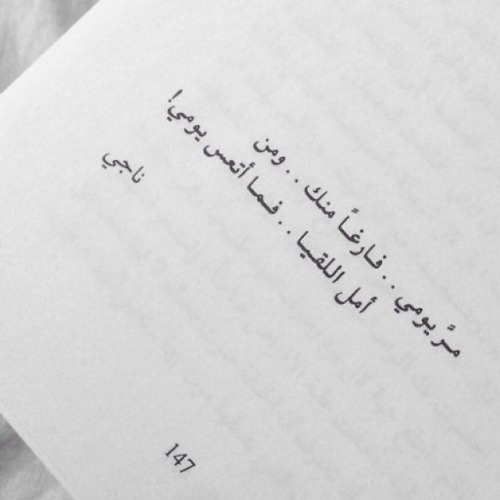 مرَّ يومي . . فارغاً منك . . ومن
أمل اللقيا . . فما أتعس يومي!
ناجي
147